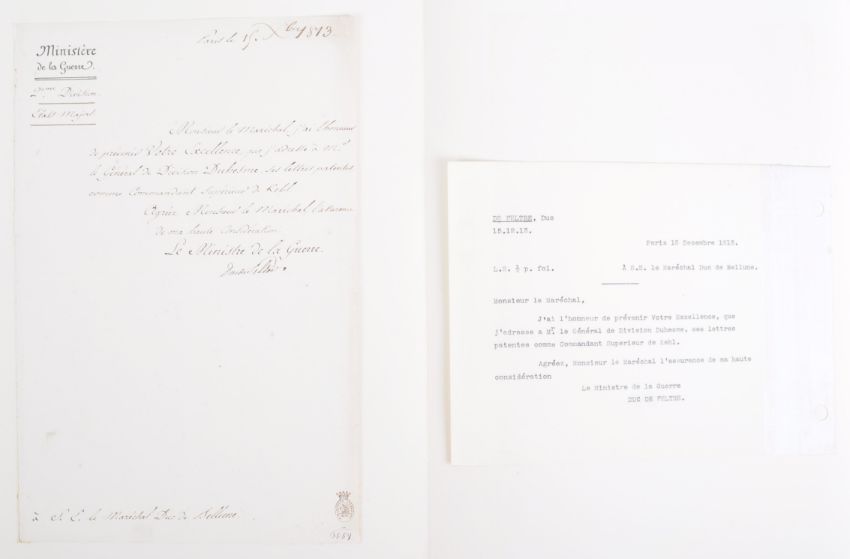 Paris le 15. Xbre 1813
Ministère
de la Guerre.
2eme Division.
Etat-Major
Monsieur le Maréchal, j'ai l'honneur
de prévenir Votre Excellence, que j'adresse à Mr.
le Général de Division Duhesme, ses lettres patentes
comme Commandant Supérieur de Kehl.
Agréez, Monsieur le Maréchal l'assurance
de ma haute considération.
Le Ministre de la Guerre
à S. E. le Maréchal Duc de Bellune
DE FELTRE, Duc
15.12.13.
Paris 15 Decembre 1813.
L.S. ½ p. fol.
À S.E. le Maréchal Duc de Bellune.
Monsieur le Maréchal,
J'ai l'honneur de prévenir Votre Excellence, que
j'adresse a Mr. le Général de Division Duhesme, ses lettres
patentes comme Commandant Superieur de Kehl.
Agréez, Monsieur le Maréchal l'assurance de ma haute
considération
Le Ministre de la Guerre
DUC DE FELTRE.